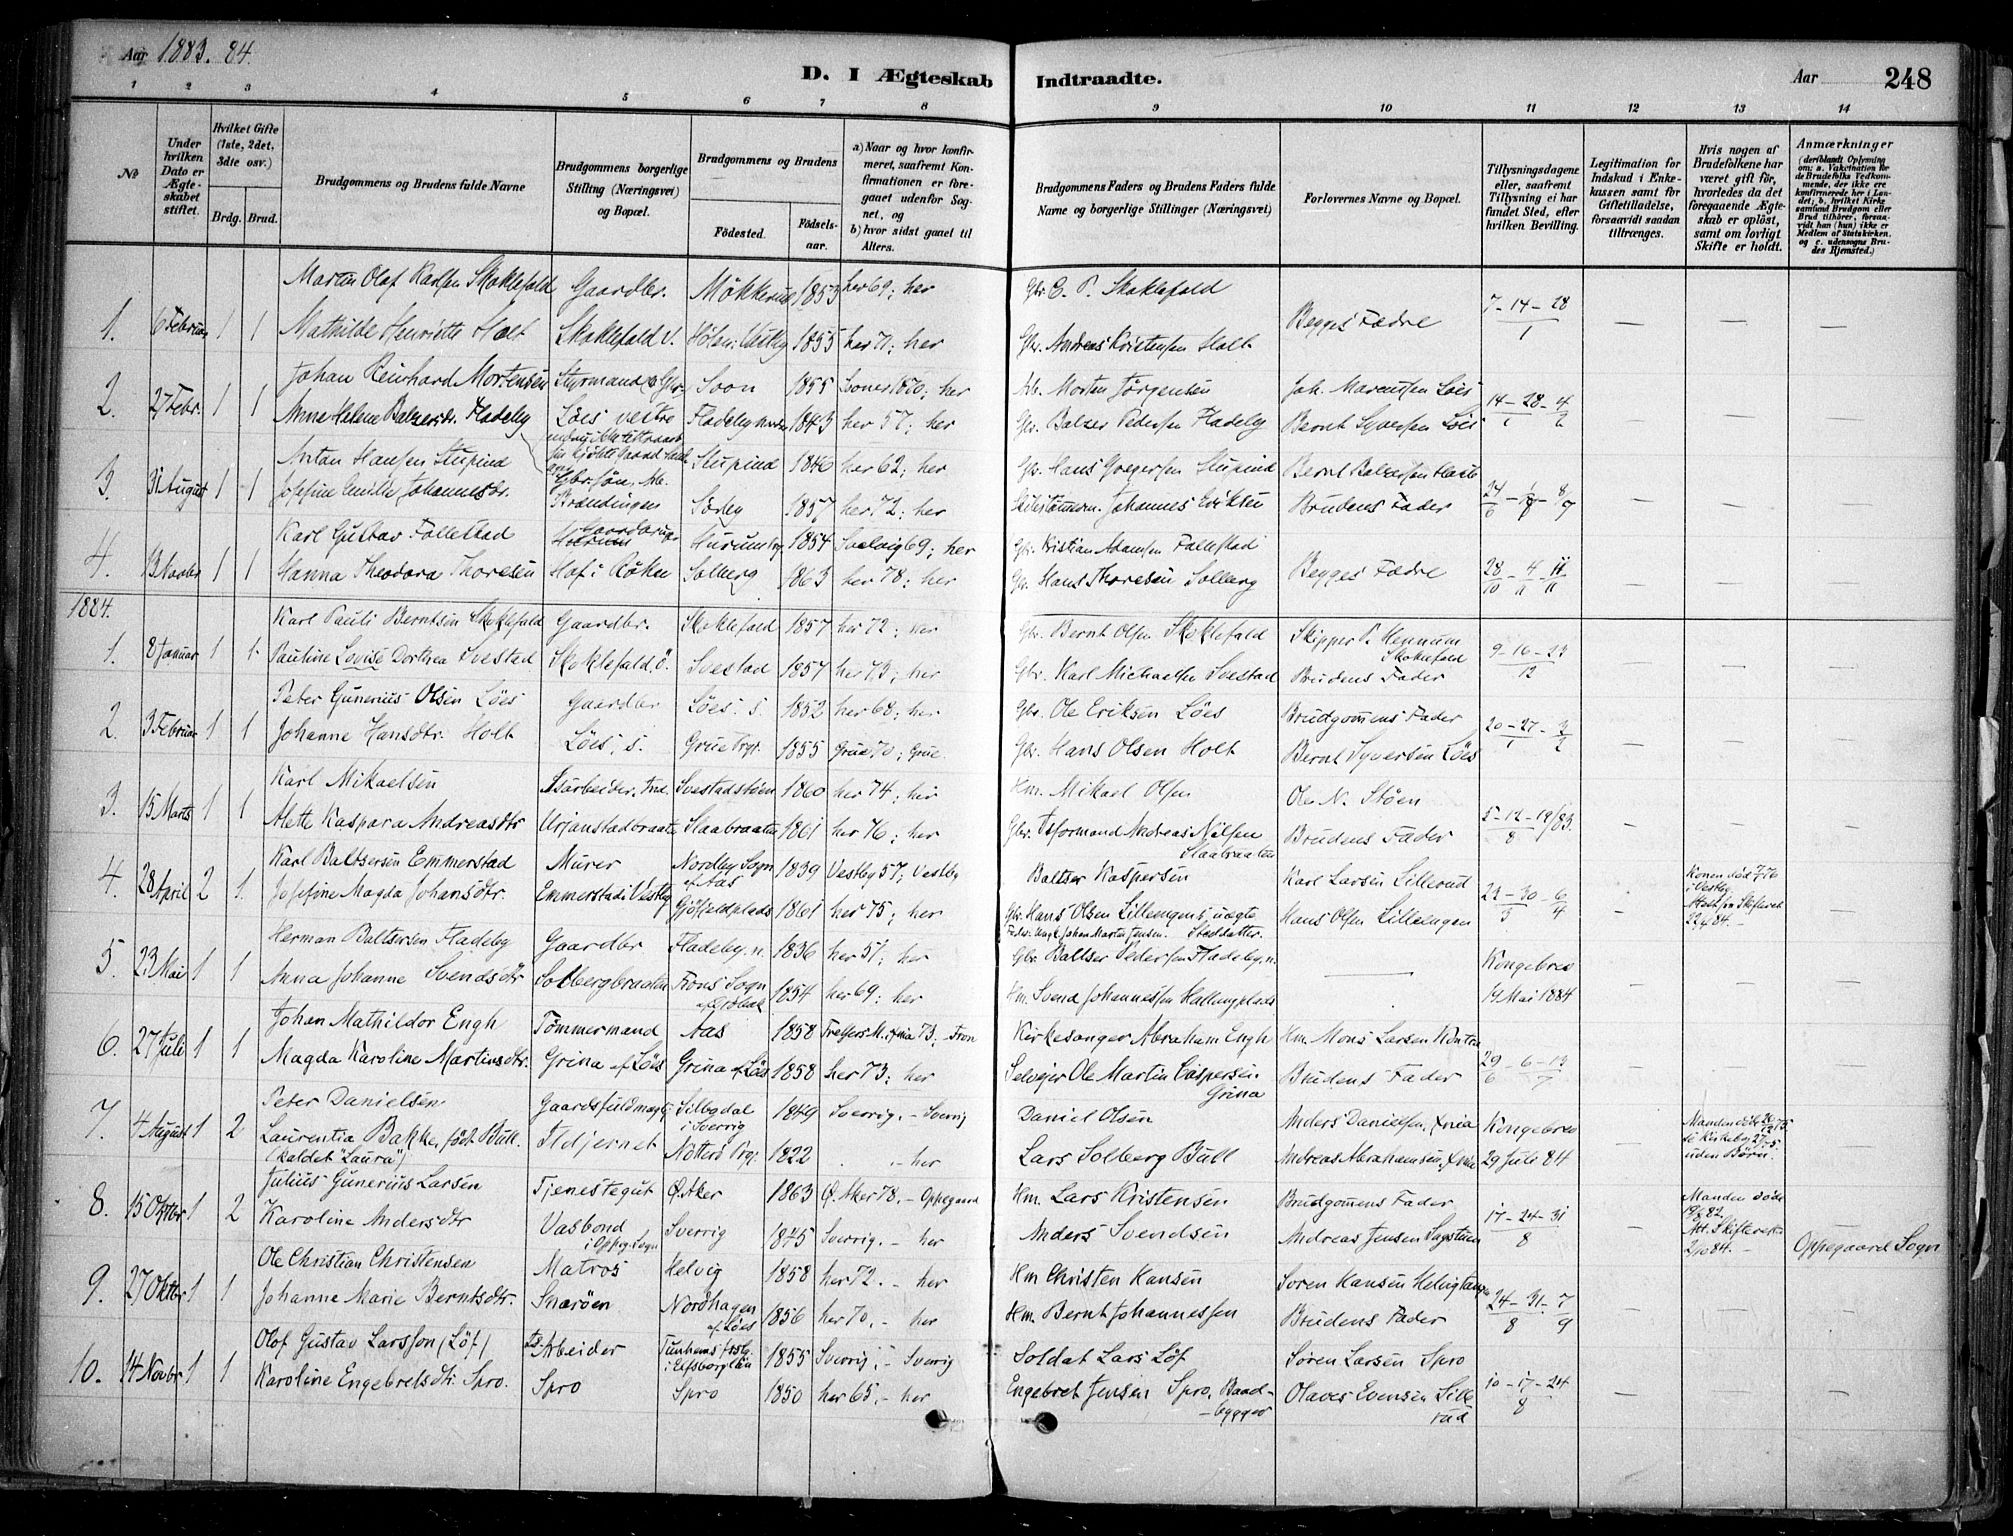 Aar 1883. 84.
D. I Ægteskab Indtraadte.
Aar 248
1 2 3 4 5 6 7 8 9 10 11 12 13 14
№
Under hvilken Dato er Ægteskabet stiftet.
Hvilket Gifte (1ste, 2det, 3die osv.)
Brdg. Brud.
Brudgommens og Brudens fulde Navne
Brudgommens borgerlige Stilling (Næringsvei) og Bopæl.
Brudgommens og Brudens
Fødested. Fødselsaar.
a) Naar og hvor konfirmeret, saafremt Konfirmationen er foregaaet udenfor Sognet, og
b) hvor sidst gaaet til Alters.
Brudgommens Faders og Brudens Faders fulde Navne og borgerlige Stillinger (Næringsvei)
Forlovernes Navne og Bopæl.
Tillysningsdagene eller, saafremt Tillysning ei har fundet Sted, efter hvilken Bevilling.
Legitimation for Indskud i Enkekassen samt for Giftetilladelse, forsaavidt saadan tiltrænges.
Hvis nogen af Brudefolkene har været gift før, hvorledes da det foregaaende Ægteskab er opløst, samt om lovligt Skifte er holdt.
Anmærkninger
(deriblandt Oplysning om: a. Vakcination for de Brudefolks Vedkommende, der ikke ere konfirmerede her i Landet; b. hvilket Kirkesamfund Brudgom eller Brud tilhører, forsaavidt han (hun) ikke er Medlem af Statskirken, og c. udensogns Brudes Hjemsted.)
Martin Olaf Karlsen Skoklefald Gaardbr. Møkkerud 1853 her 69; her Gbr. C. P. Skoklefald
1. 6 Februar 1 1 Mathilde Henriette Holt Skoklefald v. Hölen i Vestby 1855 her 71; her Gbr. Andreas Kristensen Holt Begges Fædre 7-14-28/1 — — —
Johan Reinhard Mortensen Styrmand & Gbr. Soon 1855 Soner 1870; her Morten Jørgensen Joh. Marenssen Löes
2. 27 Febr. 1 1 Anne Helene Balzersdr. Fladeby Löes vestre Fladeby nordre 1843 her 57; her Gbr. Balzer Pedersen Fladeby Bernt Syversen Löes 14-28/1-4/2 — — —
Anton Hansen Stupind Stupind 1846 her 62; her Gbr. Hans Gregersen Stupind
3. 31 August 1 1 Josefine Emilie Johannesdr. Gbr.søn, Strandengen Særby 1857 her 72; her Johannes Eriksen Brudens Fader 24/6 — — —
Karl Gustav Follestad Gaardbruger Hurum 1854 Svelvig 69; her Gbr. Kristian Adamsen Follestad
4. 13 Novbr 1 1 Hanna Theodora Thoresen Hof i Röken Solberg 1863 her 78; her Gbr. Hans Thoresen Solberg Begges Fædre 28/10-4/11-11/11 — — —
1884.
Karl Pauli Berntsen Skoklefald Gaardbr. Skoklefald 1857 her 72; her Gbr. Bernt Olsen Skoklefald Skipper P. Hennum Skoklefald
1. 8 Januar 1 1 Pauline Lovise Dorthea Svestad Skoklefald ö. Svestad 1857 her 73; her Gbr. Karl Michaelsen Svestad Brudens Fader 9-16-23/12 — — —
Peter Gunerius Olsen Löes Gaardbr Löes s. 1852 her 68; her Gbr. Ole Eriksen Löes Brudgomens Fader
2. 3 Februar 1 1 Johanne Hansdtr. Holt Löes, s. Grue Prgj. 1855 Grue 70; Grue Gbr. Hans Olsen Holt Bernt Syversen Löes 20-27/1-3/2 — — —
Karl Mikaelsen Isarbeider, Ind. Svestadstöen 1860 her 74; her Hm. Mikael Olsen Ole N. Stöen
3. 15 Marts 1 1 Alette Kaspara Andreasdtr Urjanstadbraate Slaabraaten 1861 her 76; her Gbr. Isformand Andreas Nilsen Slaabraaten Brudens Fader 5-12-19/8 83. — — —
Karl Baltsersen Emmerstad Murer Nordby Sogn af Aas 1839 Vestby 57; Vestby Baltser Kaspersen Karl Larsen Lillerud
4. 28 April 2 1. Josefine Magda Johansdtr. Emmerstad i Vestby Gjöfjeldplads 1861 her 75; her Gbr. Hans Olsen Lillengens uægte Steddatter. Fader: Ungk. Johan Martin Jensen. Hans Olsen Lillengen 23-30/3-6/4 — Konen död 7/76 i Vestby 22/4 84. —
Herman Baltsersen Fladeby Gaardbr Fladeby n. 1836 her 51; her Gbr. Baltser Pedersen Fladeby n. Kongebrev
5. 23 Mai 1 1 Anna Johanne Svendsdtr Solbergbraaten Frons Sogn af Dröbak 1854 her 69; her Hm. Svend Johannessen Hallangplads — 14 Mai 1884 — — —
Johan Mathildor Engh Tömmermand Aas 1858 Trefoldigh. Xnia 73; Fron Kirkesanger Abraham Engh Hm. Mons Larsen
6. 27 Juli 1 1 Magda Karoline Martinsdtr. Grina af Löes Grina af Löes 1858 her 73; her Selveier Ole Martin Caspersen Grina Brudens Fader 29/6-6-13/7 — — —
Peter Danielsen Gaardsfuldmægtig Silbodal i Sverrig 1849 Sverrig. — Sverrig Daniel Olsen Anders Danielsen, Xnia Kongebrev
7. 4 August 1 2 Laurentia Bakke, født Bull. (kaldet "Laura") Ildjernet Nötterö Prgj. 1822 — her Lars Solberg Bull Andreas Abrahamsen, Xnia 29 Juli 84 — uden Börn. —
Julius Gunerius Larsen Tjenestegut Ø. Aker 1863 Ø. Aker 78. — Oppegaard Hm. Lars Kristensen Brudgomens Fader Manden döde
8. 15 Oktbr 1 2 Karoline Andersdtr Vasbond i Oppeg. Sogn Sverrig 1845 Sverrig. — her Anders Svendsen Andreas Jensen Sagstuen 17-24-31/8 — 19/6 82. Att. Skifteretten 2/10 84. — Oppegaard Sogn
Ole Christian Christensen Matros Helvig 1858 her 72. — her Hm. Christen Hansen Soren Hansen Helvigtangen
9. 27 Oktbr 1 1 Johanne Marie Berntsdtr. Snaröen Nordhagen af Löes 1856 her 70. — her Hm. Bernt Johannessen Brudens Fader 24-31/8-7/9 — — —
Olof Gustav Larsson (Löf) Arbeider Tunhems i Elfsborgs Län 1855 Sverrig; — Sverrig Soldat Lars Löf Sören Larsen Spro
10. 14 Novbr 1 1 Karoline Engebretsdtr. Spro. Spro Spro 1850 her 65. — her Engebret Jensen Spro, Baadbygger Olaves Evensen Lillerud 10-17-24/8 — — —